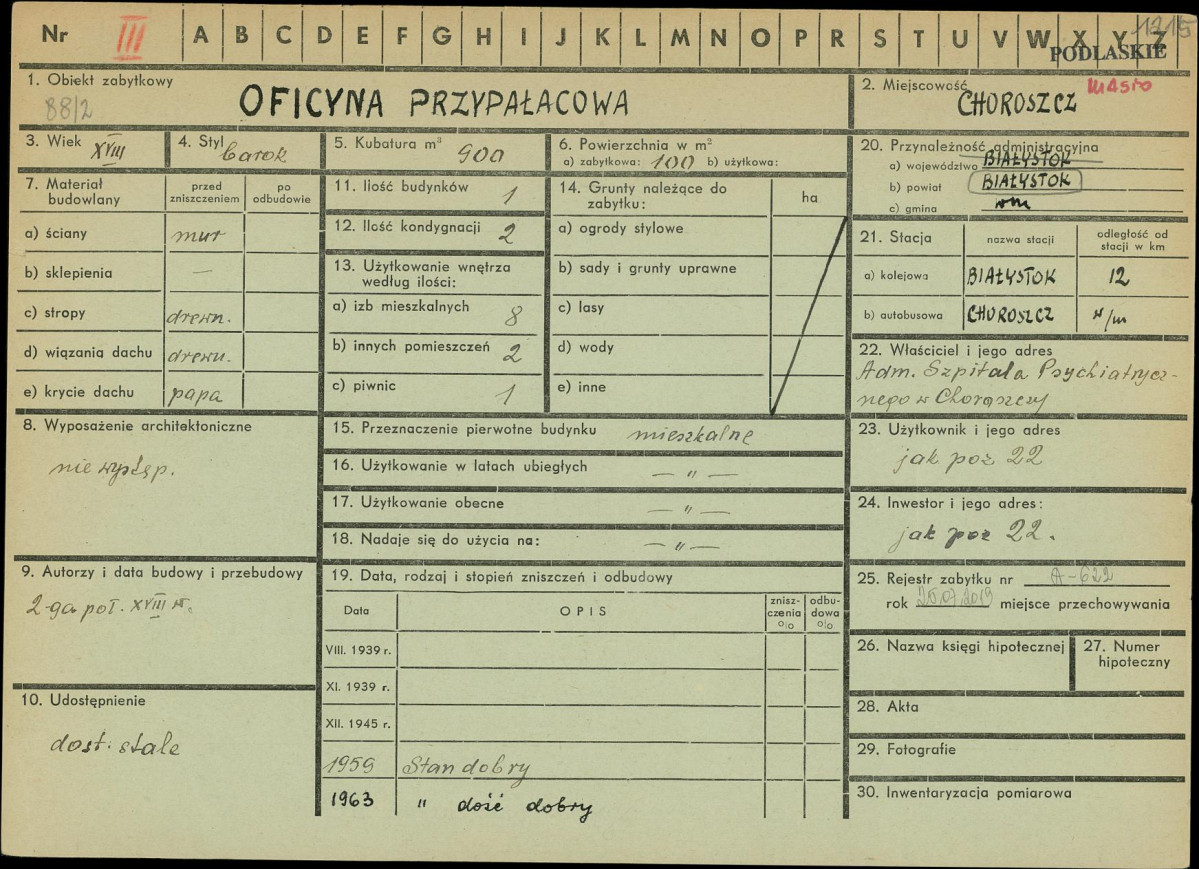 Nr III A B C D E F G H I J K L M N O P R S T U V W X Y Z
1215
PODLASKIE
1. Obiekt zabytkowy
88/2
OFICYNA PRZYPAŁACOWA
2. Miejscowość
miasto
CHOROSZCZ
3. Wiek XVIII
4. Styl barok
5. Kubatura m³ 900
6. Powierzchnia w m²
a) zabytkowa: 100 b) użytkowa:
7. Materiał budowlany
przed zniszczeniem
po odbudowie
a) ściany mur
b) sklepienia —
c) stropy drewn.
d) wiązania dachu drewn.
e) krycie dachu papa
8. Wyposażenie architektoniczne
nie występ.
9. Autorzy i data budowy i przebudowy
2-ga poł. XVIII w.
10. Udostępnienie
dost. stale
11. Ilość budynków 1
12. Ilość kondygnacji 2
13. Użytkowanie wnętrza
według ilości:
a) izb mieszkalnych 8
b) innych pomieszczeń 2
c) piwnic 1
14. Grunty należące do
zabytku:
ha
a) ogrody stylowe
b) sady i grunty uprawne
c) lasy
d) wody
e) inne
15. Przeznaczenie pierwotne budynku mieszkalne
16. Użytkowanie w latach ubiegłych — " —
17. Użytkowanie obecne — " —
18. Nadaje się do użycia na: — " —
19. Data, rodzaj i stopień zniszczeń i odbudowy
Data
OPIS
znisz-
czenia
%
odbu-
dowa
%
VIII. 1939 r.
XI. 1939 r.
XII. 1945 r.
1959 Stan dobry
1963 " dość dobry
20. Przynależność administracyjna
a) województwo BIAŁYSTOK
b) powiat BIAŁYSTOK
c) gmina
21. Stacja
nazwa stacji
odległość od
stacji w km
a) kolejowa BIAŁYSTOK 12
b) autobusowa CHOROSZCZ w/m
22. Właściciel i jego adres
Adm. Szpitala Psychiatrycz-
nego w Choroszczy
23. Użytkownik i jego adres
jak poz 22
24. Inwestor i jego adres:
jak poz 22.
25. Rejestr zabytku nr A-622
rok 25.07.2019 miejsce przechowywania
26. Nazwa księgi hipotecznej
27. Numer
hipoteczny
28. Akta
29. Fotografie
30. Inwentaryzacja pomiarowa